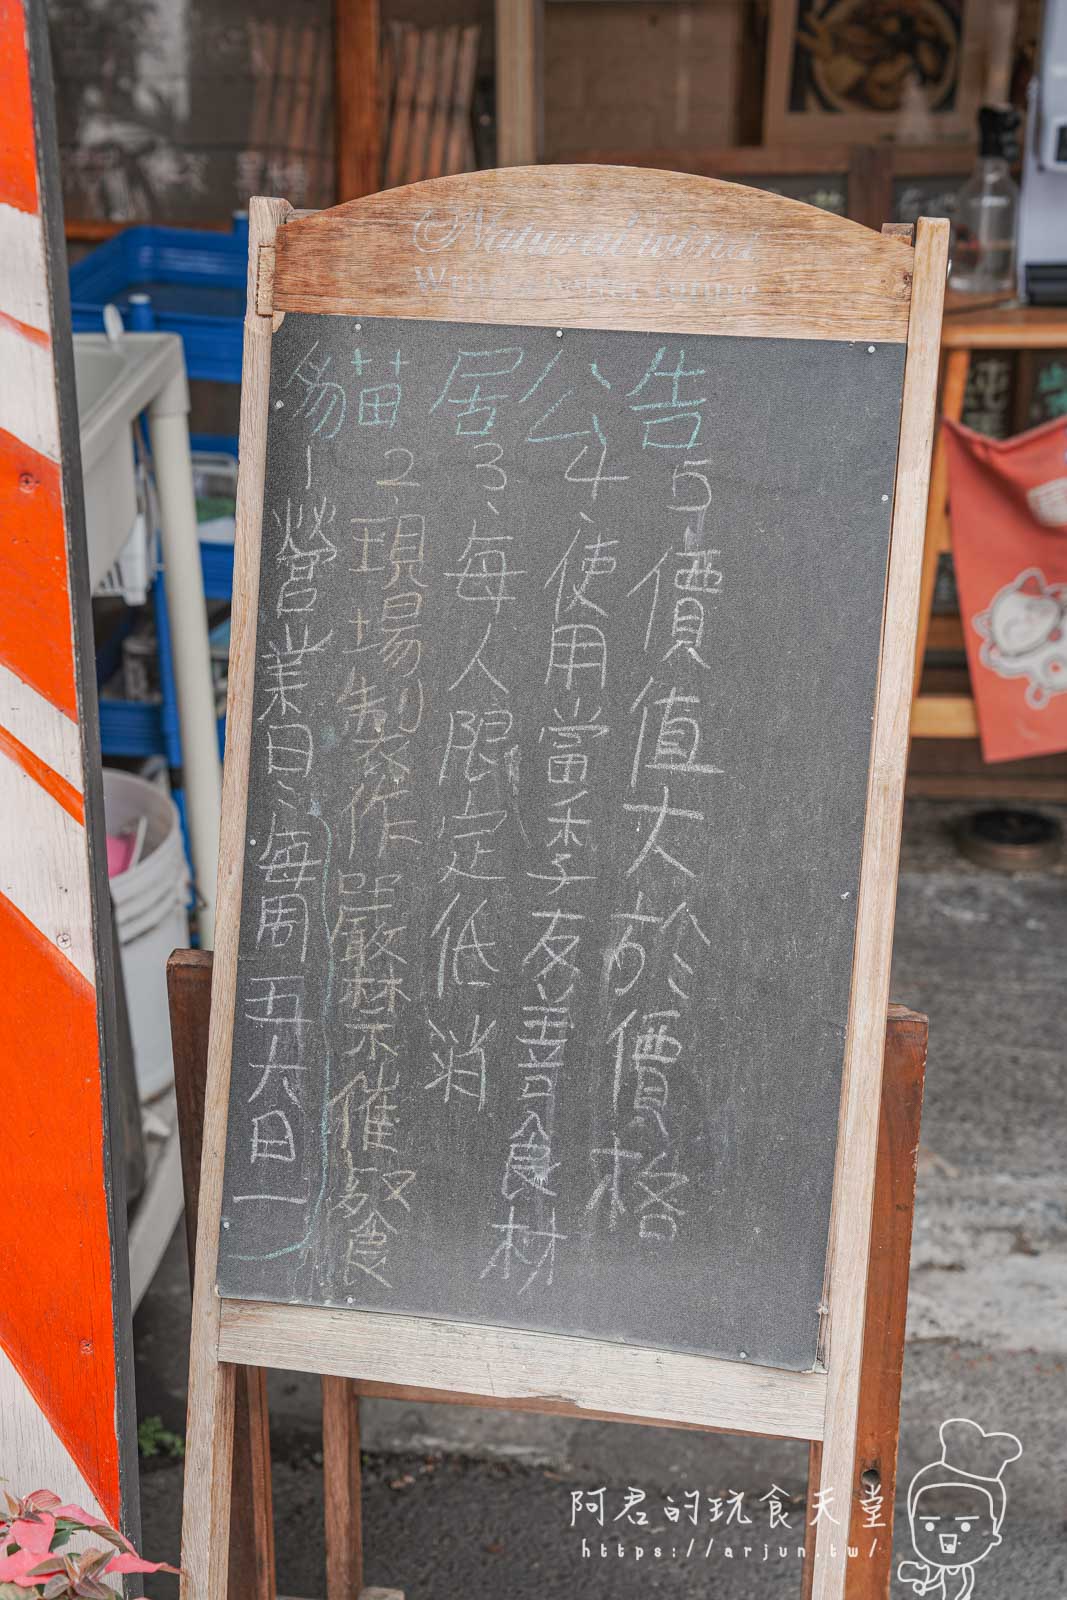 Natural wind
貓居公告
1 營業日：每周五六日一
2、現場製作嚴禁催餐
3、每人限定低消
4、使用當季友善食材
5 價值大於價格
阿君的玩食天堂
https://arjun.tw/